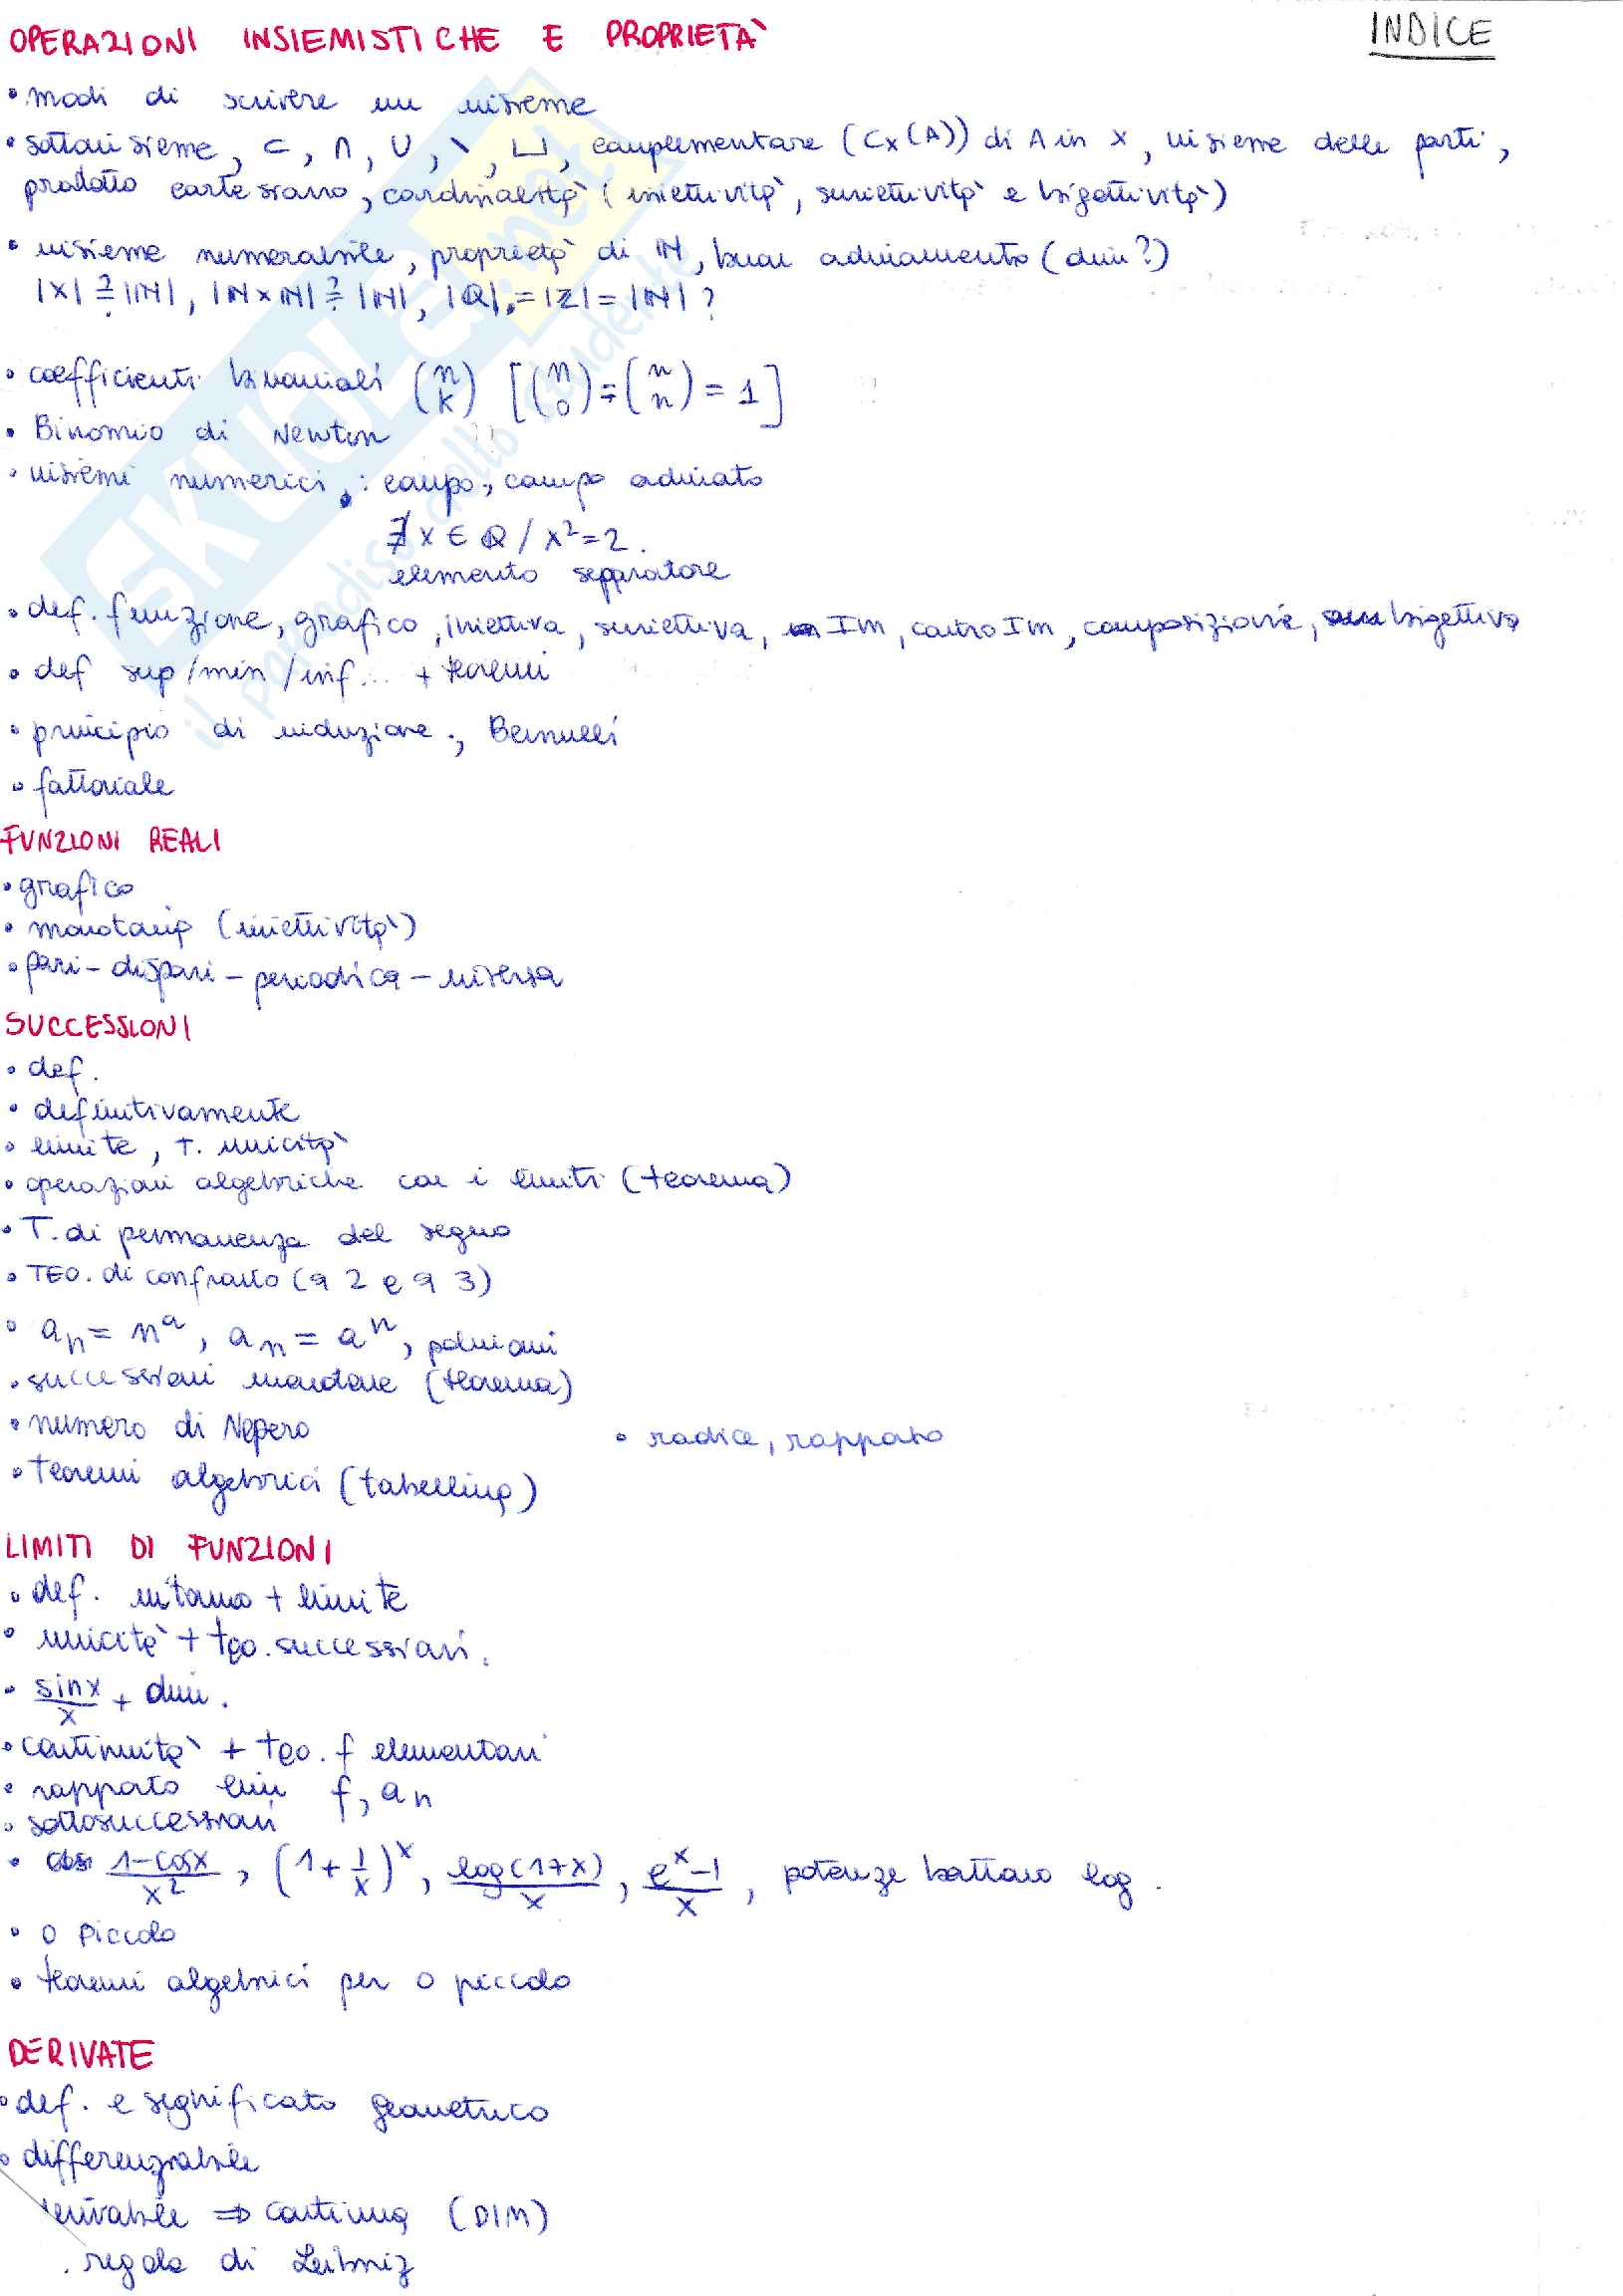 INDICE
OPERAZIONI INSIEMISTICHE E PROPRIETÀ
• modi di scrivere un insieme
• sottoinsieme, ⊂, ∩, ∪, \, ⊔, complementare (Cx(A)) di A in X, insieme delle parti,
prodotto cartesiano, cardinalità (iniettività, suriettività e bigettività)
• insieme numerabile, proprietà di ℕ, buon ordinamento (dim?)
|X| ≟ |ℕ|, |ℕ×ℕ| ≟ |ℕ|, |ℚ| = |ℤ| = |ℕ| ?
• coefficienti binomiali (n k) [(n 0) = (n n) = 1]
• Binomio di Newton
• insiemi numerici: campo, campo ordinato
∄ x ∈ ℚ / x² = 2.
elemento separatore
• def. funzione, grafico, iniettiva, suriettiva, Im, contro Im, composizione, bigettiva
• def sup/min/inf... + teoremi
• principio di induzione, Bernulli
• fattoriale
FUNZIONI REALI
• grafico
• monotonia (iniettività)
• pari - dispari - periodica - inversa
SUCCESSIONI
• def.
• definitivamente
• limite, T. unicità
• operazioni algebriche con i limiti (teorema)
• T. di permanenza del segno
• TEO. di confronto (a 2 e a 3)
• aₙ = nᵃ, aₙ = aⁿ, polinomi
• successioni monotone (teorema)
• numero di Nepero
• radice, rapporto
• teoremi algebrici (tabellina)
LIMITI DI FUNZIONI
• def. intorno + limite
• unicità + teo. successioni.
• sinx/x + dim.
• continuità + teo. f elementari
• rapporto lim f, aₙ
• sottosuccessioni
• 1-cosx/x², (1+1/x)ˣ, log(1+x)/x, eˣ-1/x, potenze battono log.
• o piccolo
• teoremi algebrici per o piccolo
DERIVATE
• def. e significato geometrico
• differenziabile
derivabile ⇒ continua (DIM)
. regola di Leibniz
SKUOLA.net
il paradiso dello studente